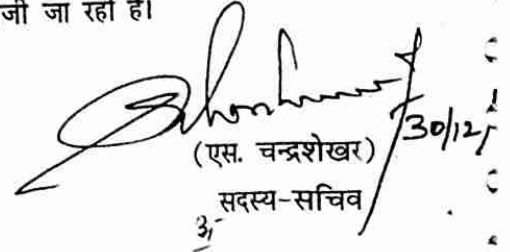 जी जा रही है।
30/12/
(एस. चन्द्रशेखर)
सदस्य-सचिव